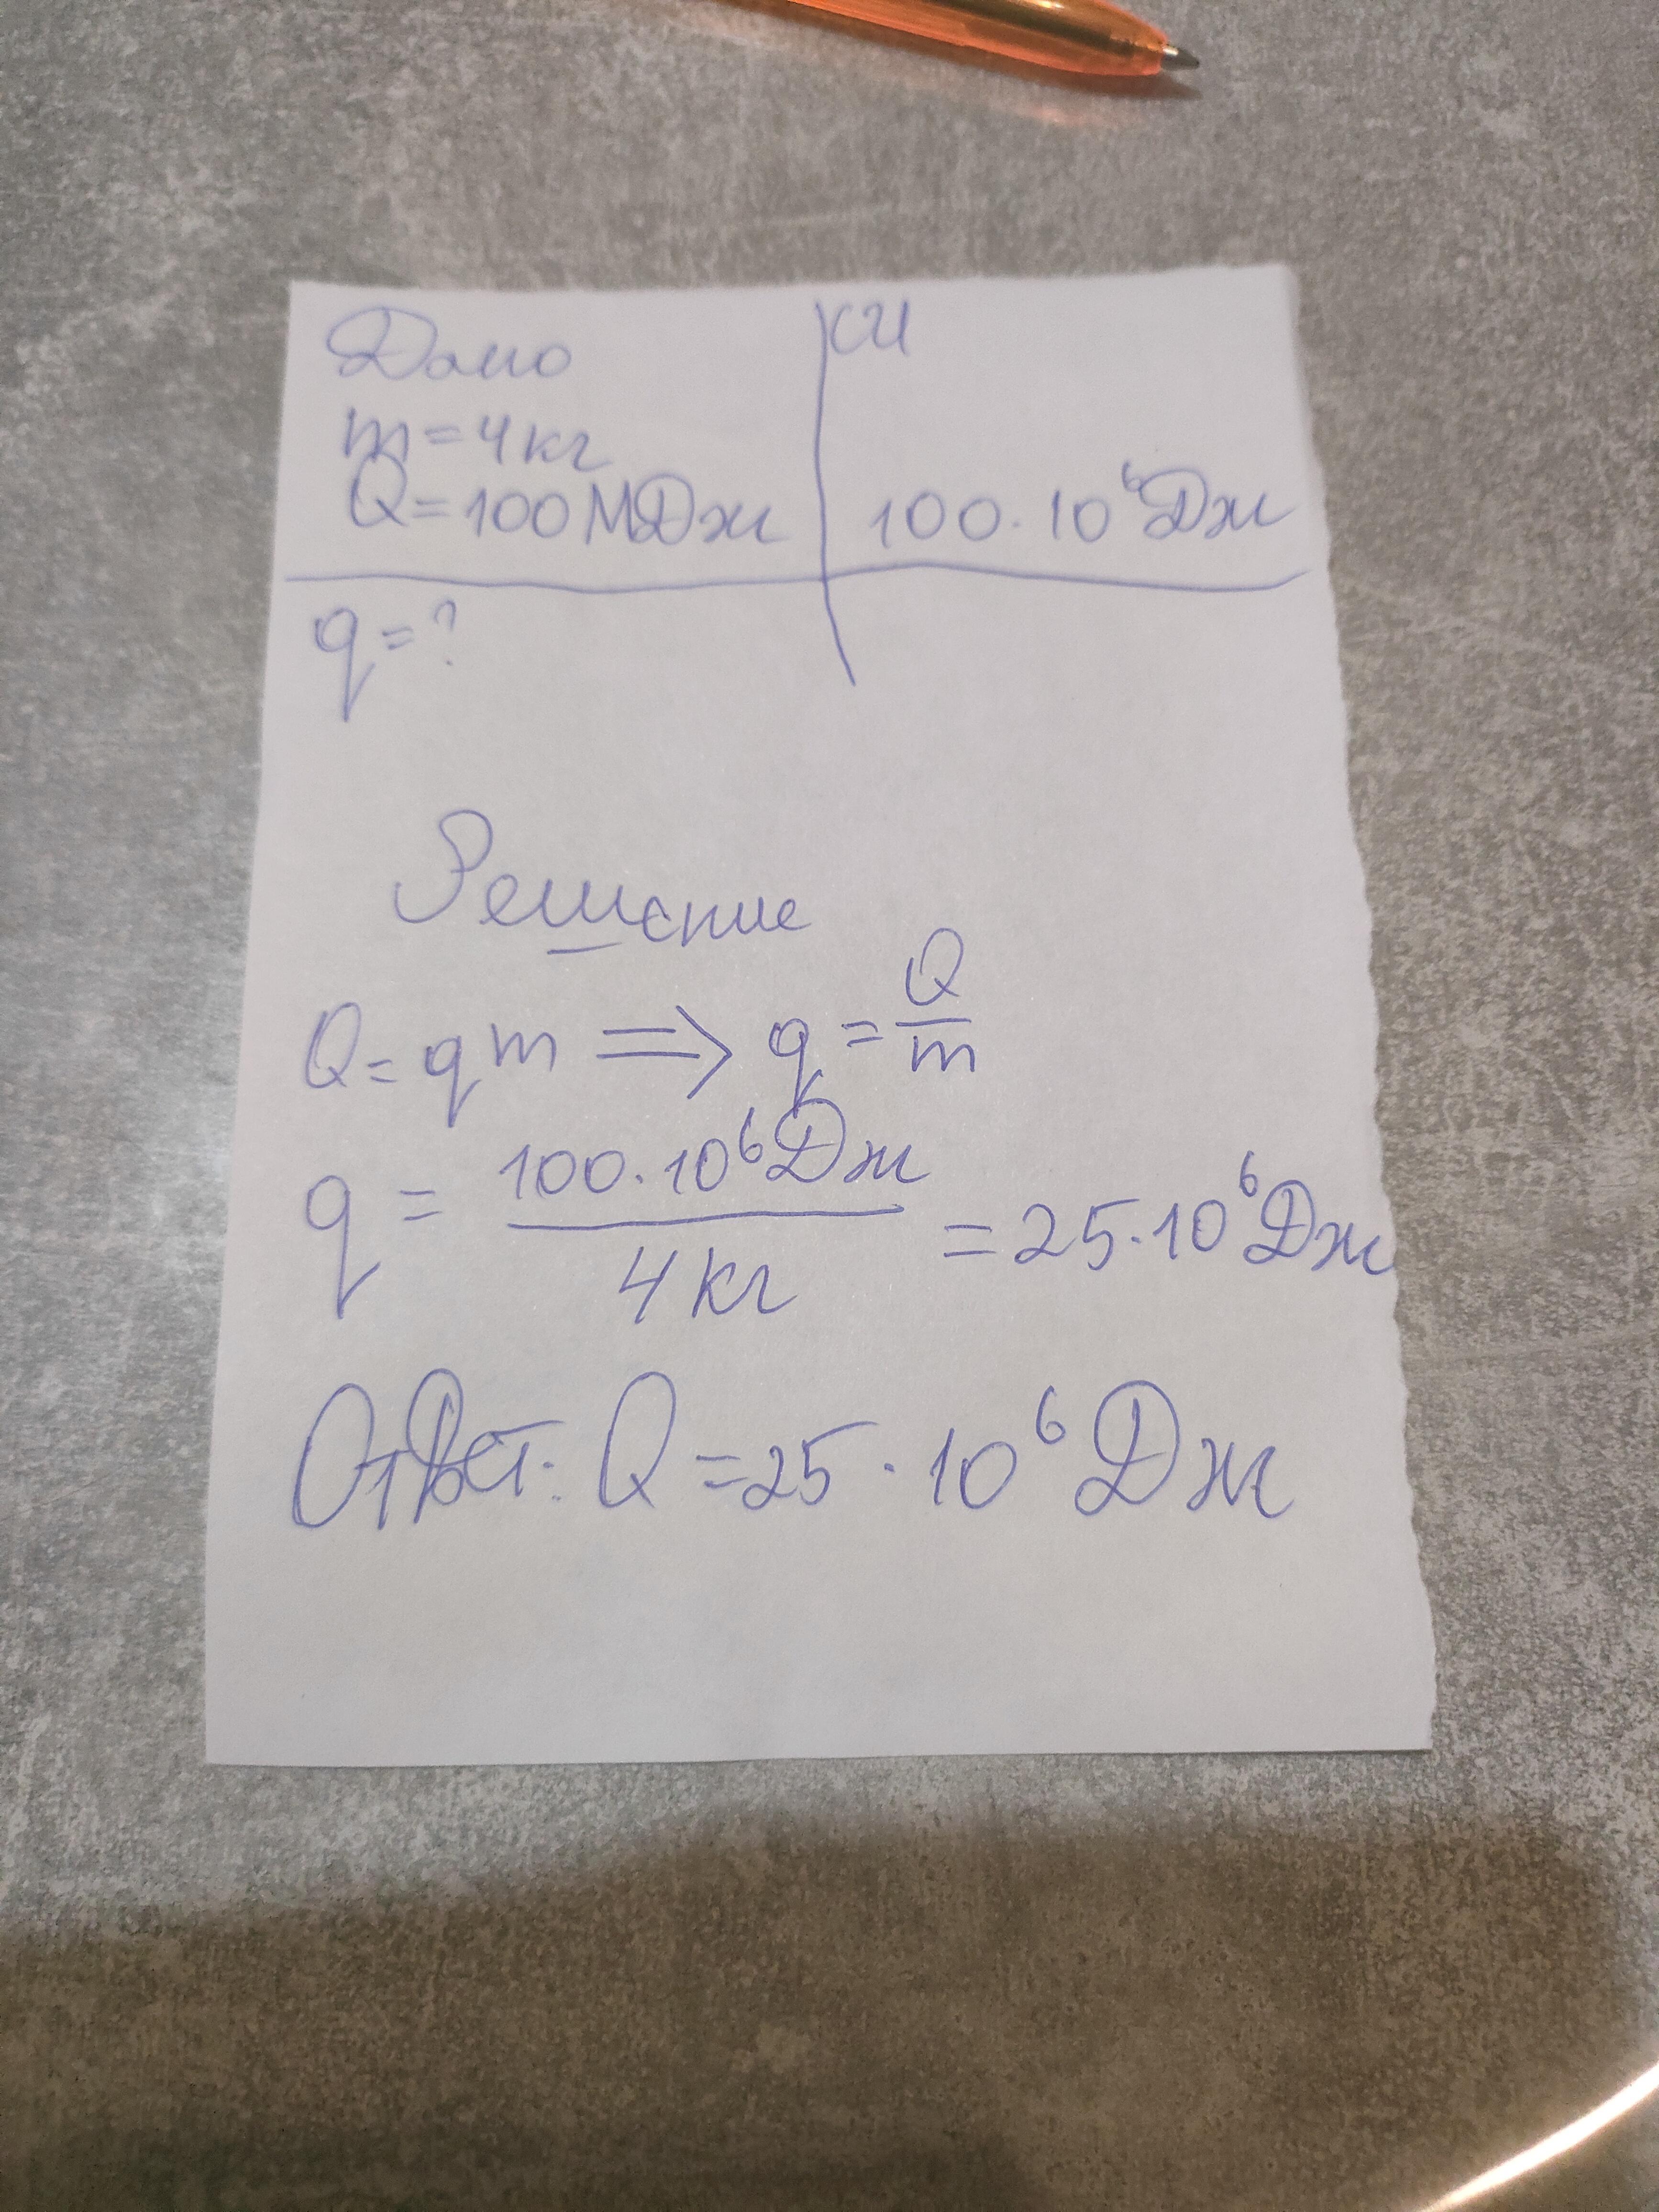 Дано СИ
m = 4 кг
Q = 100 МДж 100 · 10⁶ Дж
q = ?
Решение
Q = qm ⟹ q = Q/m
q = 100 · 10⁶ Дж / 4 кг = 25 · 10⁶ Дж
Ответ: Q = 25 · 10⁶ Дж